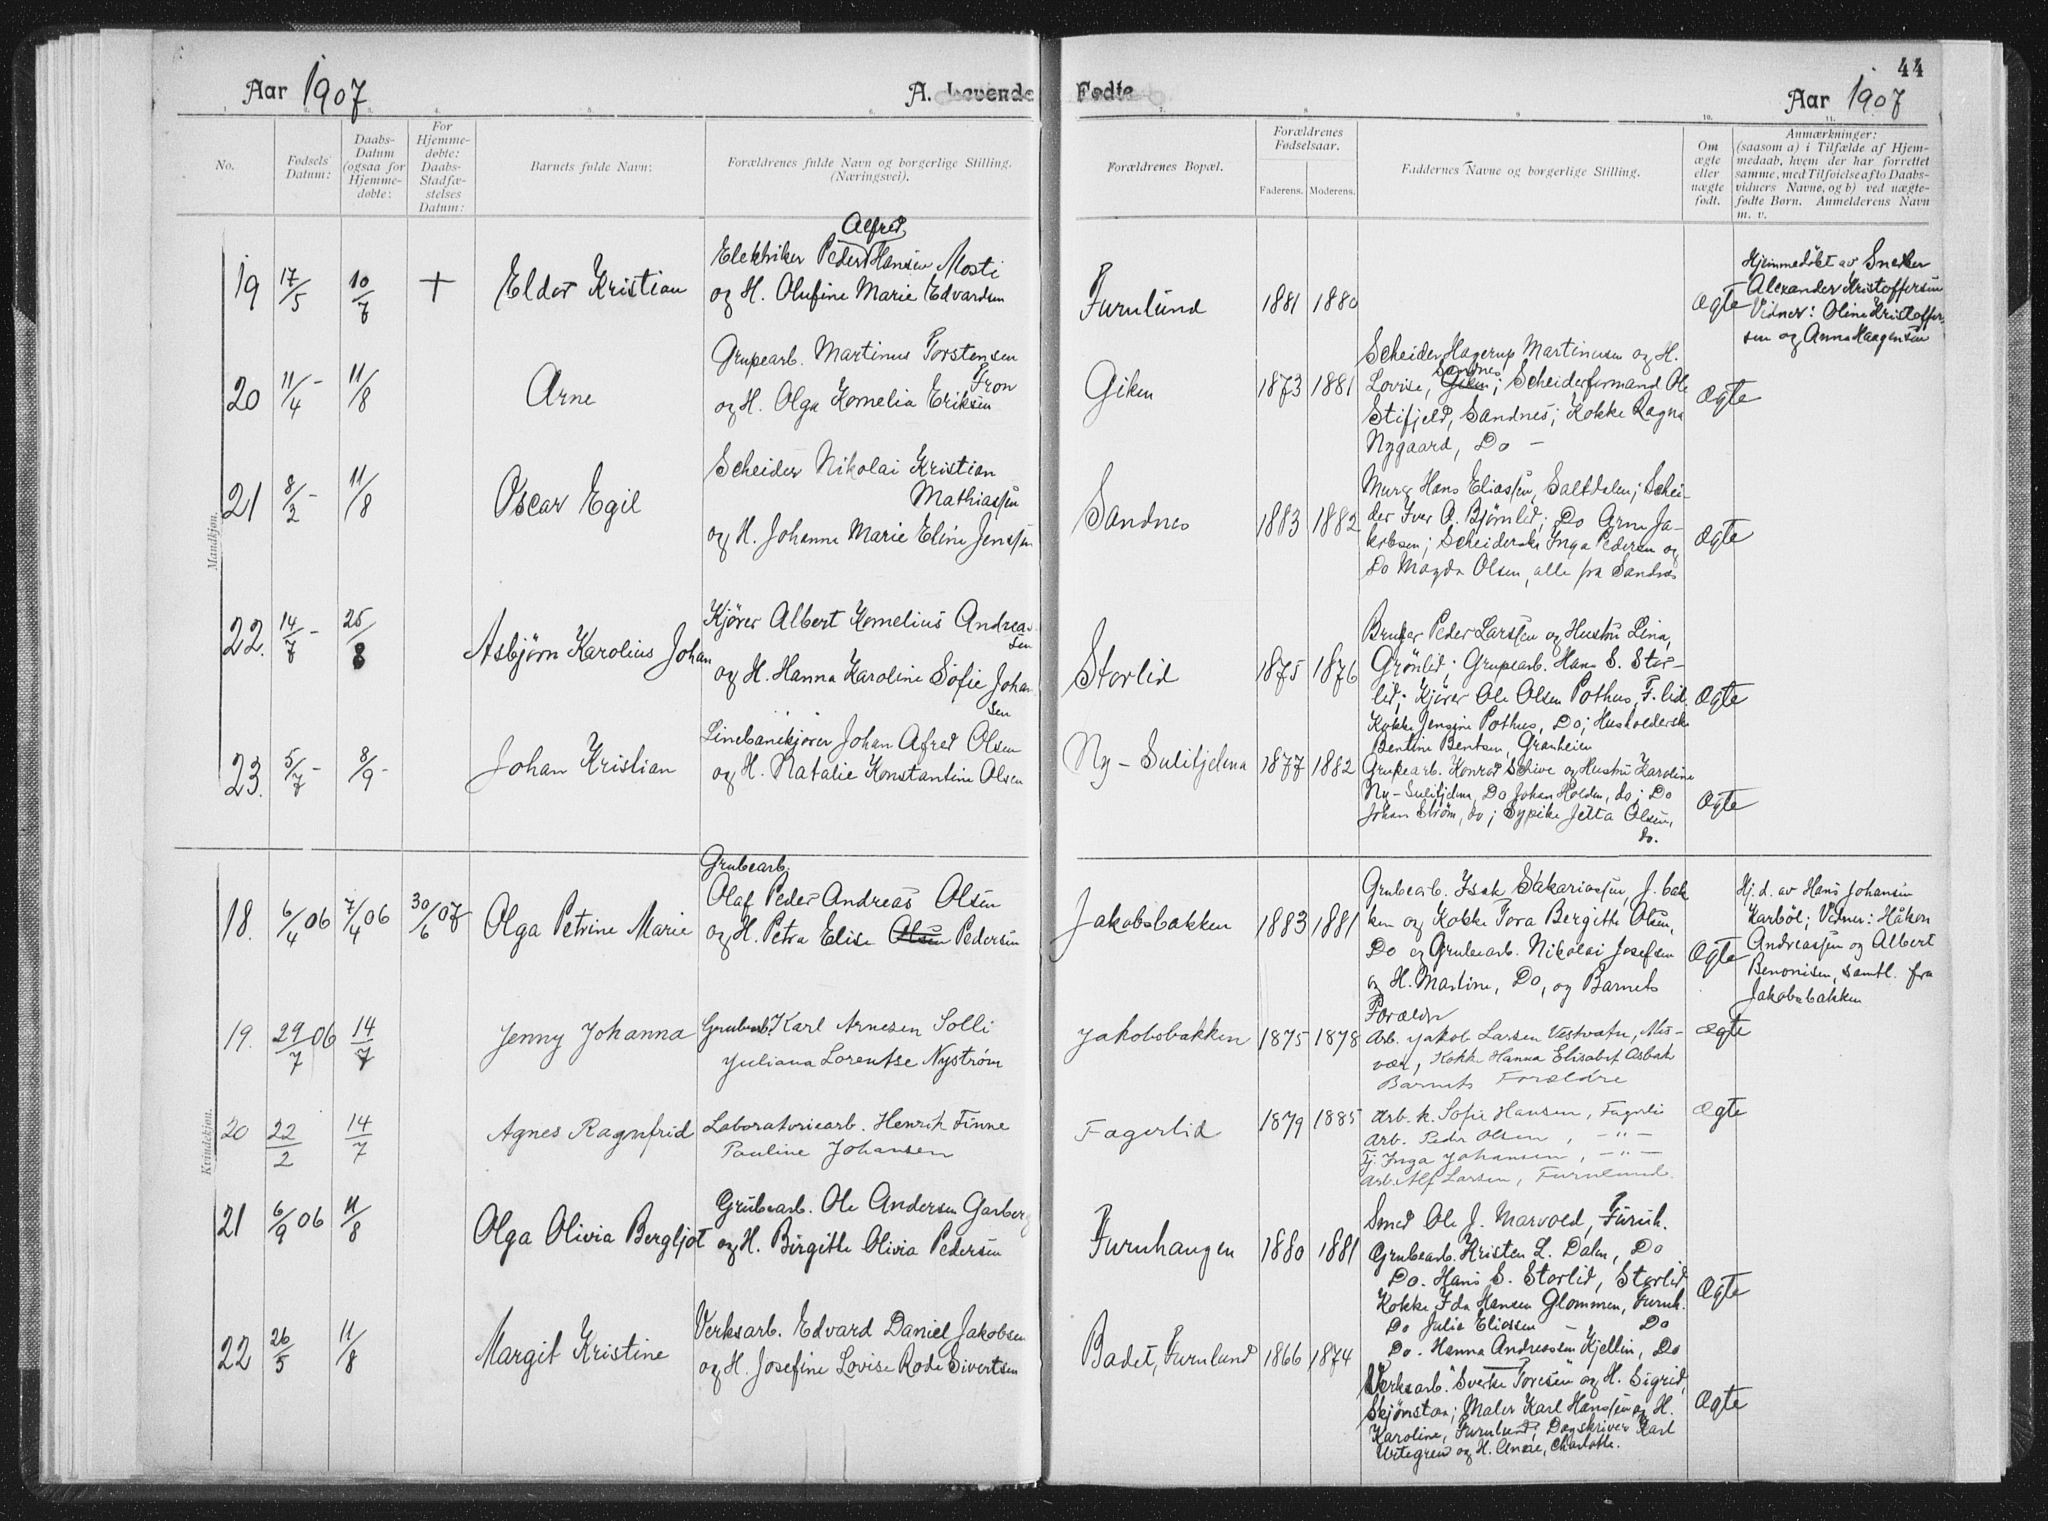 44
Aar 1907
A. Levende Fødte
Aar 1907
1. 2. 3. 4. 5. 6. 7. 8. 9. 10. 11.
No.
Fødsels Datum:
Daabs-Datum (ogsaa for Hjemmedøbte:
For Hjemmedøbte: Daabs-Stadfæstelses Datum:
Barnets fulde Navn:
Forældrenes fulde Navn og borgerlige Stilling. (Næringsvei).
Forældrenes Bopæl.
Forældrenes Fødselsaar.
Faderens. Moderens.
Faddernes Navne og borgerlige Stilling.
Om ægte eller uægte født.
Anmærkninger:
(saasom a) i Tilfælde af Hjem-
medaab, hvem der har forrettet
samme, med Tilføielse af to Daabs-
vidners Navne, og b) ved uægte-
fødte Børn. Anmelderens Navn
m. v.
Mandkjøn.
19 17/5 10/7 + Eldor Kristian
Alfred
Elektriker Peder Hansen Mosti
og H. Olufine Marie Edvardsen
Furulund 1881 1880 Ægte
Hjemmedøbt av Snedker
Alexander Kristoffersen
Vidner: Oline Kristoffer-
sen og Anna Haagensen
20 11/4 - 11/8 Arne
Grupearb. Martinus Torstensen
Tron
og H. Olga Kornelia Eriksen
Giken 1873 1881
Scheider Hagerup Martinusen og H.
Sandnes
Lovise, Giken; Scheiderformand Ole
Stifjeld, Sandnes; Kokke Ragna
Nygaard, Do -
Ægte
21 8/2 - 11/8 Oscar Egil
Scheider Nikolai Kristian
Mathiassen
og H. Johanne Marie Eline Jenssen
Sandnes 1883 1882
Murer Hans Eliassen, Saltdalen; Schei-
der Iver A. Bjørnlid; Do Arne Ja-
kobsen; Scheiderske Inga Pedersen og
Do Magda Olsen, alle fra Sandnes
Ægte
22. 14/7 - 25/8 Asbjørn Karolius Johan
Kjører Albert Kornelius Andreas-
sen
og H. Hanna Karoline Sofie Johan
sen
Storlid 1875 1876
Bruger Peder Larssen og Hustru Lina,
Grønlid; Grupearb. Hans S. Stor-
lid; Kjører Ole Olsen Pothus, F. lid.
Kokke Jensine Pothus, Do; Husholderske
Bentine Bentsen, Granheien
Ægte
23. 5/7 - 8/9 - Johan Kristian
Linebanekjører Johan Alfred Olsen
og H. Natalie Konstantine Olsen
Ny-Sulitjelma 1877 1882
Grupearb. Konrad Schive og Hustru Karoline
Ny-Sulitjelma, Do Johan Holden, do; Do
Johan Strøm, do; Sypike Jetta Olsen,
do.
Ægte
Kvindekjøn.
18. 6/4 06 7/4 06 30/6 07 Olga Petrine Marie
Grubearb.
Olaf Peder Andreas Olsen
og H. Petra Elise Olsen Pedersen
Jakobsbakken 1883 1881
Grubearb. Isak Sakariassen, J. bak
ken og Kokke Tora Bergitte Olsen,
Do og Grubearb. Nikolai Josefsen
og H. Martine, Do, og Barnets
Forældre
Ægte
Hj. d. av Hans Johansen
Karbøl; Vidner: Håkon
Andreassen og Albert
Benonisen, samtl. fra
Jakobsbakken
19. 29/7 06 14/7 Jenny Johanna
Grubearb. Karl Arnesen Solli
Juliana Lorentse Nystrøm
Jakobsbakken 1875 1878
Arb. Jakob Larsen Vestvatn, Mis-
vær, Kokke Hanna Elisabet Asbak
Barnets Forældre
Ægte
20 22/2 14/7 Agnes Ragnfrid
Laboratoriearb. Henrik Finne
Pauline Johansen
Fagerlid 1879 1885
Arb. k. Sofie Hansen, Fagerli
Arb. Peder Olsen, -"-
Tj. Inga Johansen, -"-
Arb. Alf Larsen, Furulund.
Ægte
21 6/9 06 11/8 Olga Olivia Bergljot
Grubearb. Ole Andersen Garberg
og H. Birgitte Olivia Pedersen
Furuhaugen 1880 1881
Smed Ole J. Marvold, Furuh.
Grubearb. Kristen L. Dalen, Do
Do. Hans S. Storlid, Storlid
Kokke Ida Hansen Glommen, Furuh.
Do Julie Eliassen - Do
Do. Hanna Andreassen Kjellin, Do
Ægte
22 26/5 11/8 Margit Kristine
Verksarb. Edvard Daniel Jakobsen
og H. Josefine Lovise Rode Sivertsen
Badet, Furulund 1866 1874
Verksarb. Sverke Toresen og H. Sigrid,
Skjønstaa; Maler Karl Hanssen og H.
Karoline, Furulund; Dagskriver Karl
og H. Charlotte.
Ægte